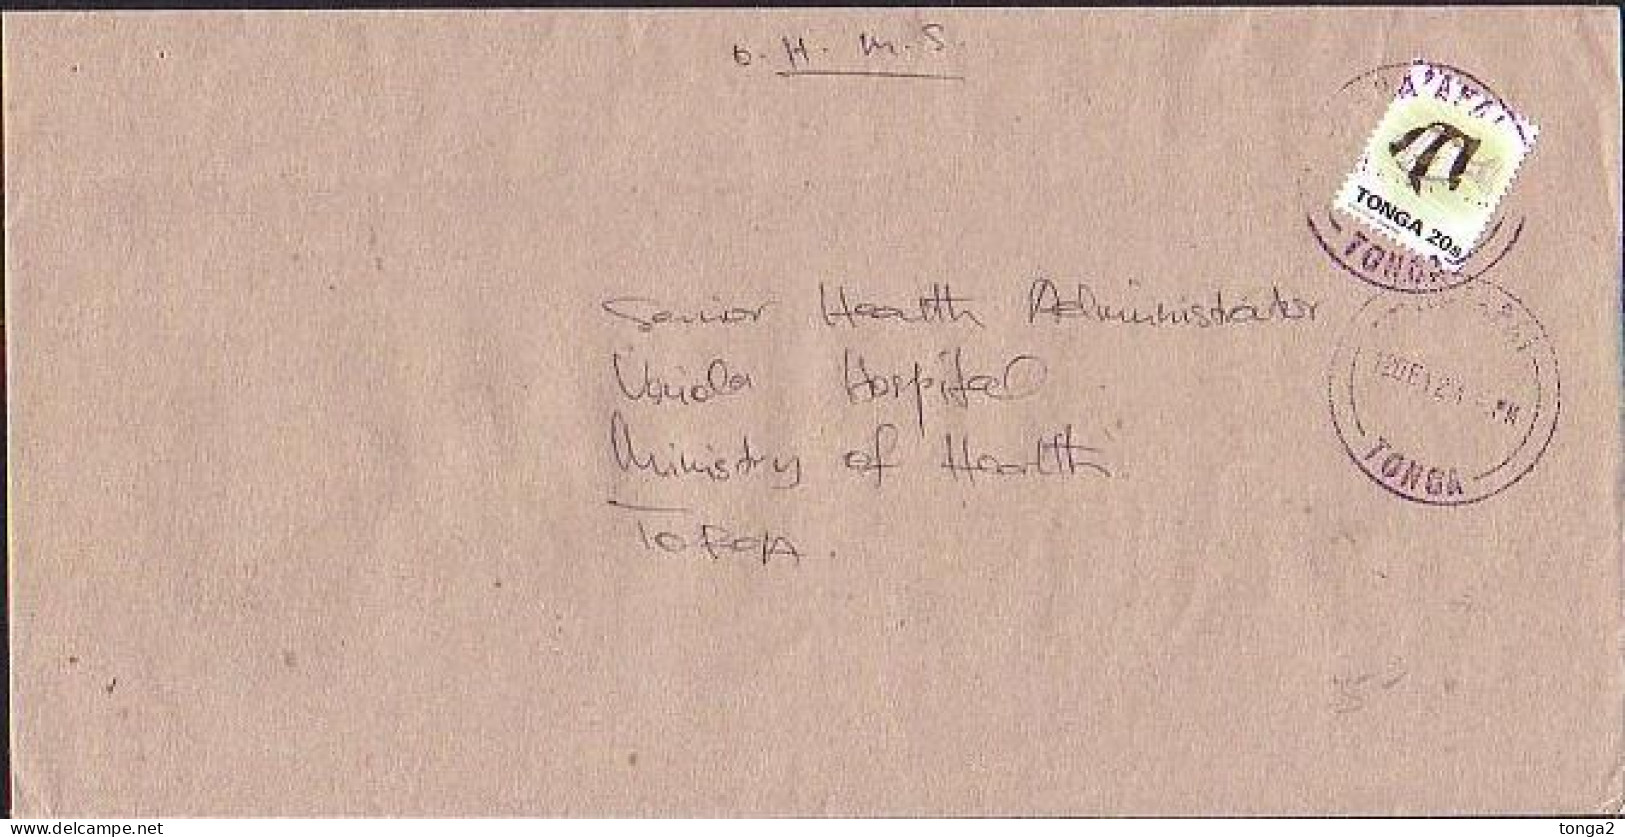 O.H.M.S.
A'AFAI
TONGA 20s
TONGA
Senior Health Administrator
Vaiola Hospital
Ministry of Health
TONGA
TONGA
delcampe.net
tonga2